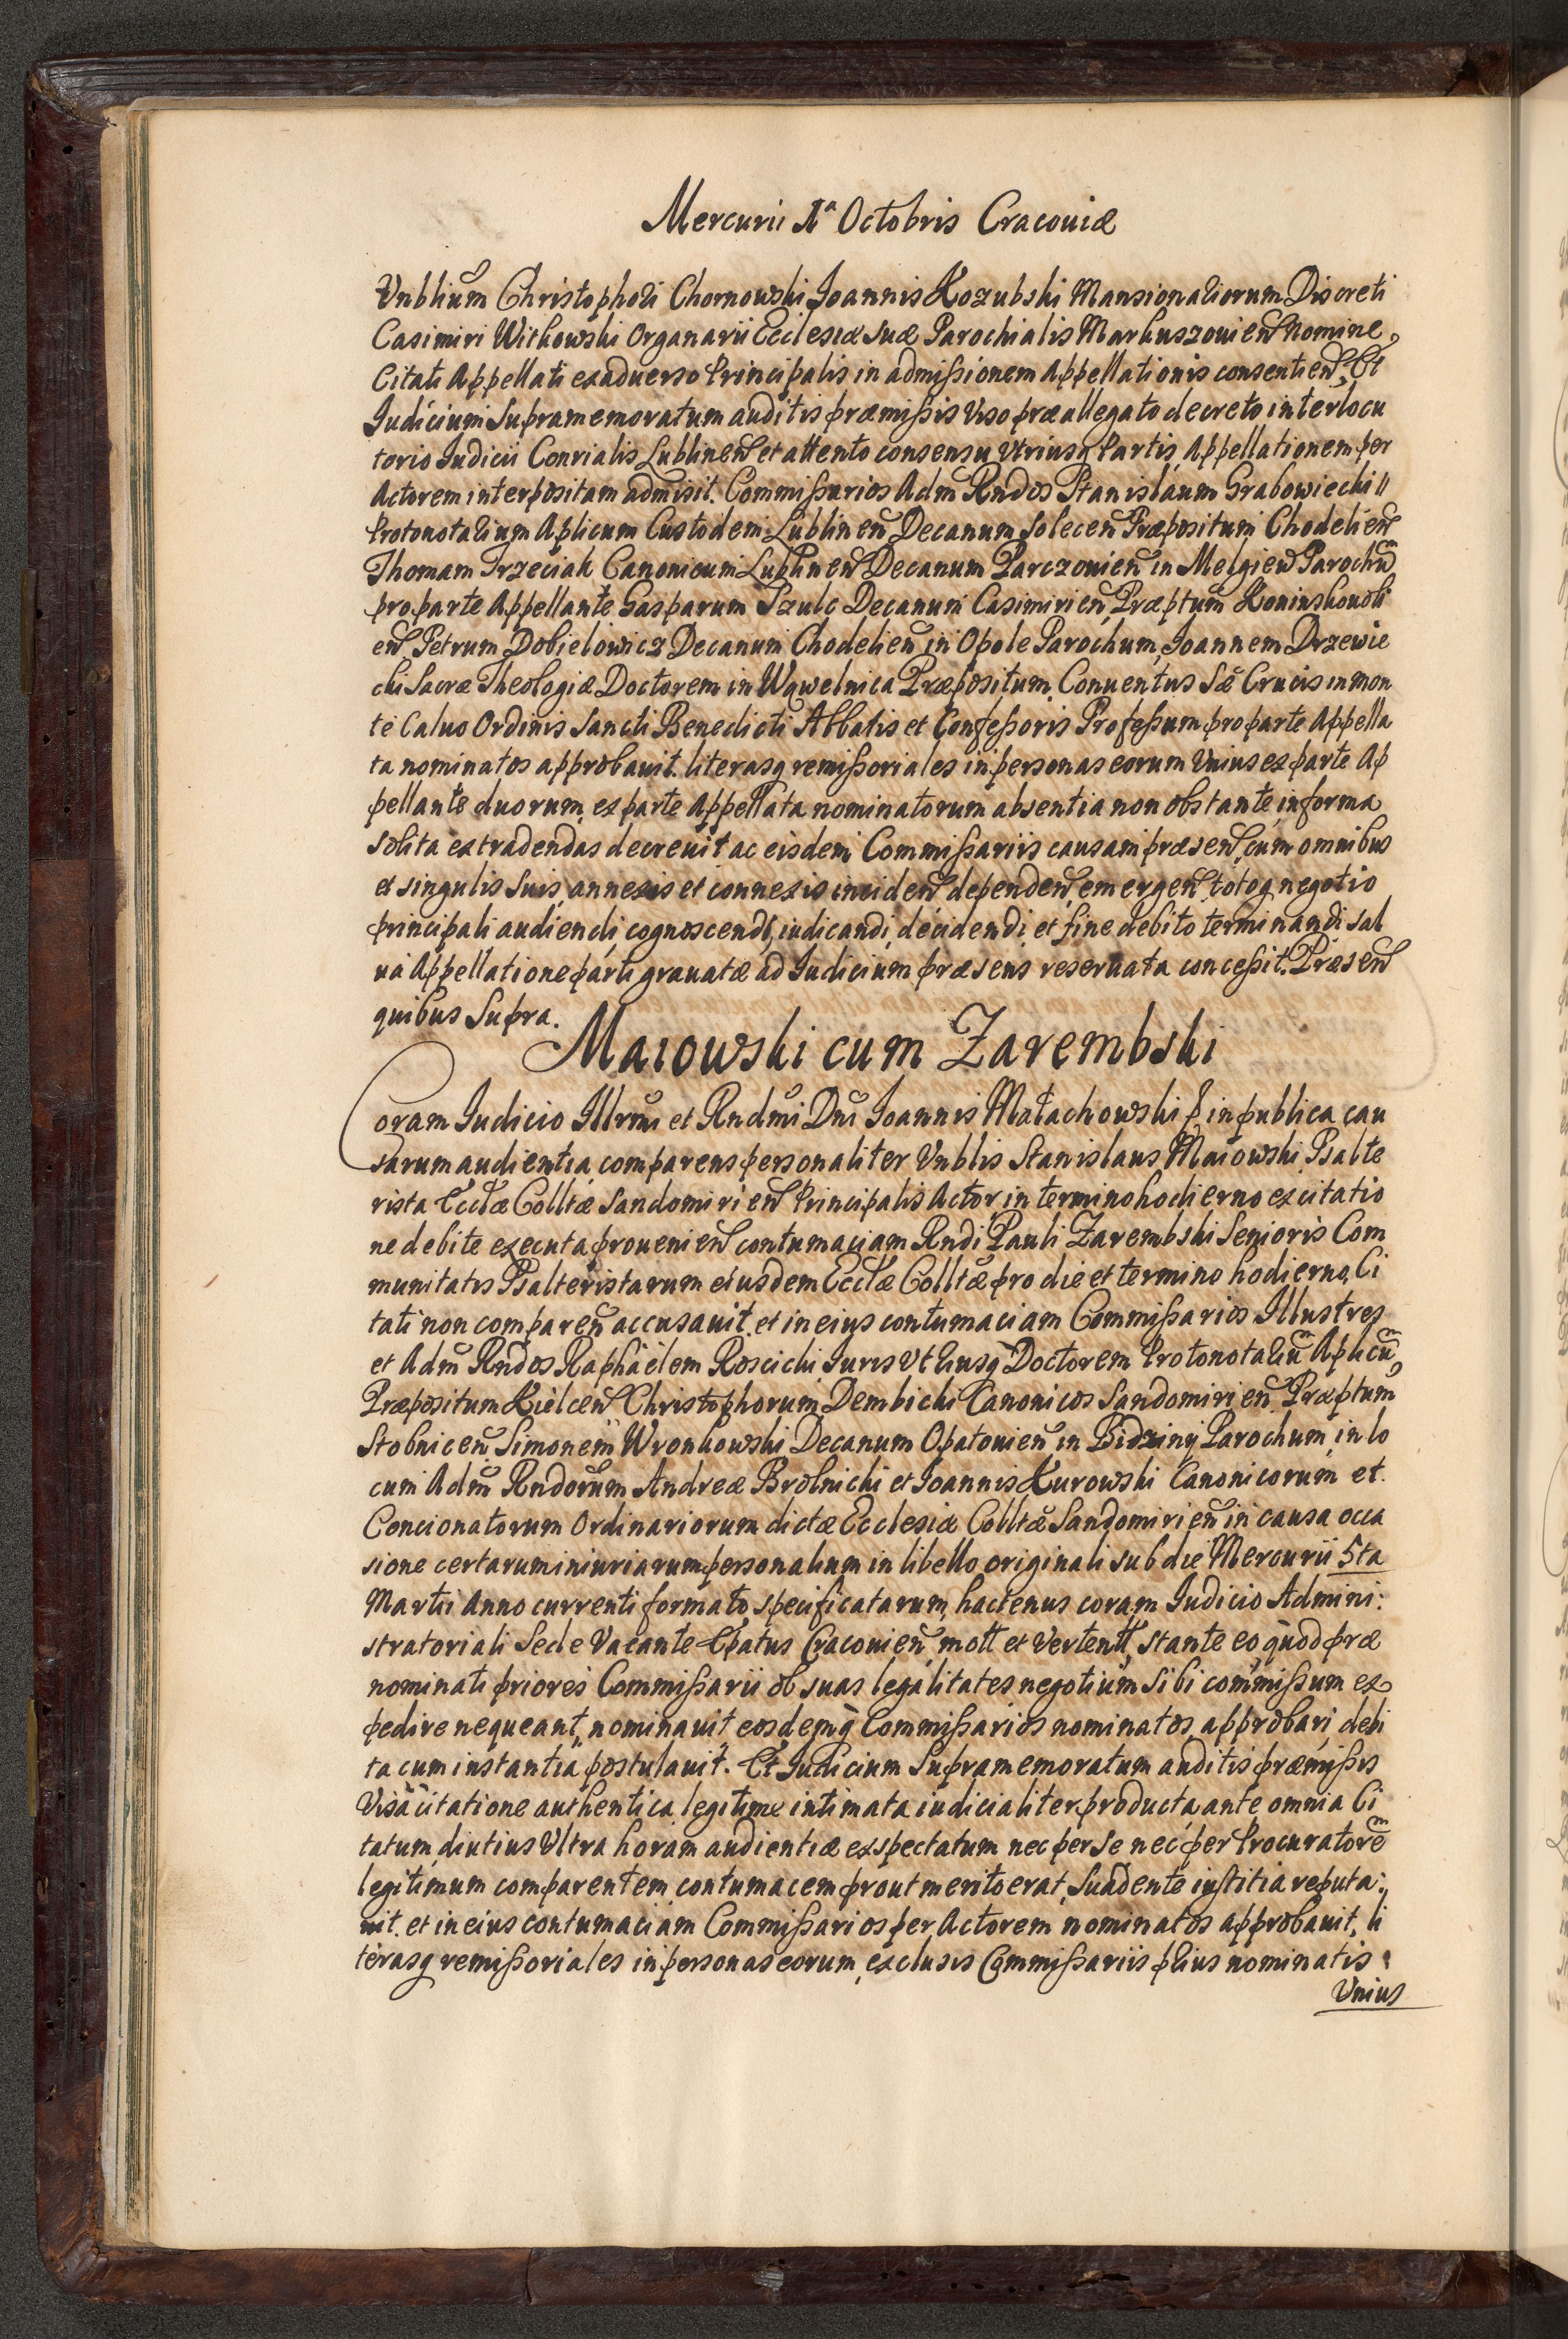 Mercurii 1ª Octobris Cracouiæ
Vnbliũm Christophori Chornowski Joannis Kozubski Mansionariorum Discreti
Casimiri Witkowski Organarii Ecclesiæ suæ Parochialis Markuszouień Nomine,
Citati Appellati ex aduerso Principalis in admißionem Appellationis consentień, Et
Iudicium Supramemoratum auditis præmißis Viso præallegato decreto interlocu
torio Iudicii Conrialis Lublineń et attento consensu Vtriusq Partis, Appellationem per
Actorem interpositam admisit. Commißarios Adm̃ Rndos Stanislaum Grabowiecki //
Protonotarium Aplicum Custodem Lublineń Decanum Soleceń Præpositum Chodelień
Thomam Trzeciak Canonicum Lublineń Decanum Parczouień in Melgiew Parochũ
pro parte Appellante Gasparum Szulc Decanum Casimirień Præptum Koninskouoli
eń Petrum Dobielowicz Decanum Chodelień in Opole Parochum, Joannem Drzewie
cki Sacræ Theologiæ Doctorem in Wąwelnica Præpositum, Conuentus Sæ̃ Crucis in mon
te Caluo Ordinis Sancti Benedicti Abbatis et Confeßoris Profeßum pro parte Appella
ta nominatos approbauit. literasq remißoriales in personas eorum Vnius ex parte Ap
pellante duorum ex parte Appellata nominatorum absentia non obstante, in forma
solita extradendas decreuit ac eisdem Commißariis causam præseń, cum omnibus
et singulis suis, annexis et connexis incideń, dependeń, emergeń, totoq negotio
principali audiendi cognoscendi, iudicandi, decidendi et fine debito terminandi sal
uá Appellatione parti grauatæ ad Iudicium præsens reseruata conceßit. Præseń
quibus Supra.
Maiowski cum Zarembski
Coram Iudicio Illrmi et Rndmi Dni Joannis Małachowski p in publica cau
sarum audientia comparens personaliter Vnblis Stanislaus Maiowski Psalte
rista Ecclæ Colltæ Sandomirień Principalis Actor in termino hodierno ex citatio
ne debite executa prouenień contumaciam Rndi Pauli Zarembski Senioris Com
munitatis Psalteristarum eiusdem Ecclæ Colltæ pro die et termino hodierno, Ci
tati non compareń accusauit. et in eius contumaciam Commißarios Illustres
et Adm̃ Rndos Raphaëlem Roscicki Iuris Vtriusq Doctorem Protonotariũ Aplicũ,
Præpositum Kielceń Christophorum Dembicki Canonicos Sandomirień Præptum
Stobniceń Simonem Wronkowski Decanum Opatouień in Bidziny Parochum, in lo
cum Adm̃ Rndorum Andreæ Brolnicki et Joannis Kurowski Canonicorum et
Concionatorum Ordinariorum dictæ Ecclesiæ Colltæ Sandomirień in causa occa
sione certarum iniuriarum personalium in libello originali sub die Mercurii 5ta
Martii Anno currenti formato specificatarum, hactenus coram Iudicio Admini:
stratoriali Sede Vacante Epatus Cracouień mott et Vertentt, stante eo quòd præ
nominati priores Commißarii ob suas legalitates negotium sibi commißum ex
pedire nequeant, nominauit eosdemq̃ Commißarios nominatos approbari debi
ta cum instantia postulauit. Et Iudicium Supramemoratum auditis præmißis
Visa citatione authentica legitime intimata iudicialiter producta, ante omnia Ci
tatum diutius Vltra horam audientiæ exspectatum nec per se nec per Procuratorẽ
legitimum comparentem contumacem prout merito erat, Suadente iustitia reputa:
uit. et in eius contumaciam Commißarios per Actorem nominatos approbauit, li
terasq remißoriales in personas eorum exclusis Commißariis prius nominatis
Vnius